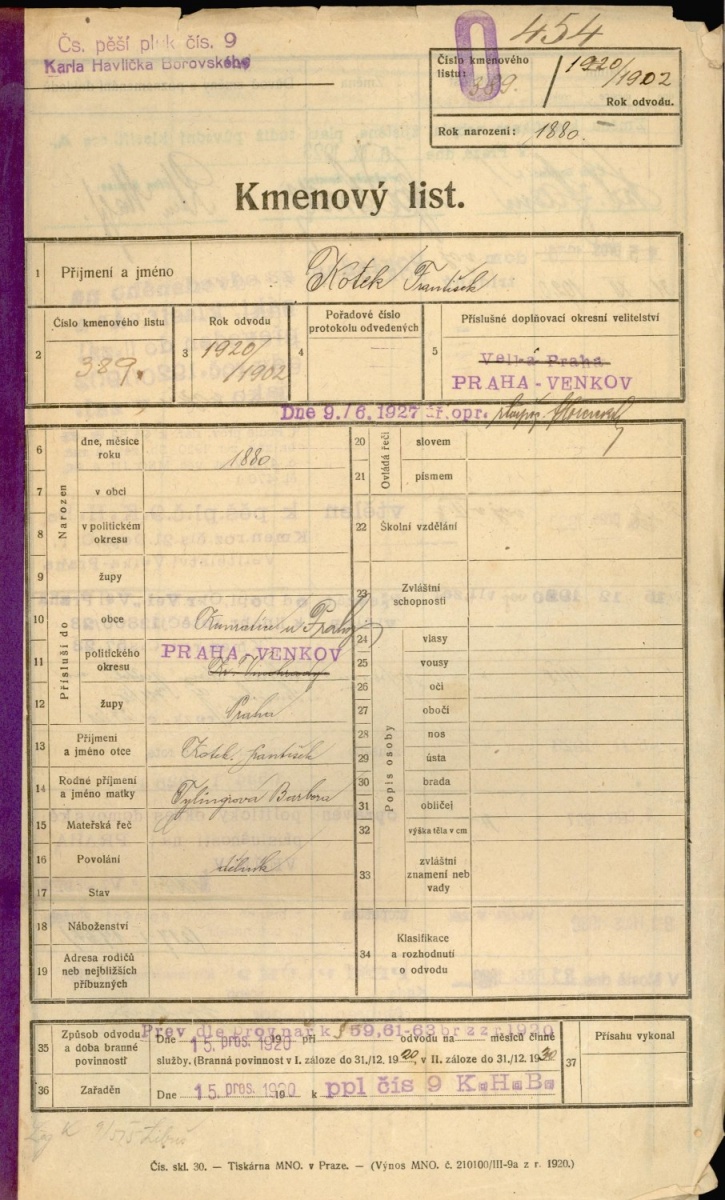 Čs. pěší pluk čís. 9
Karla Havlíčka Borovského
O 454
Číslo kmenového listu: 389.
1920/1902
Rok odvodu.
Rok narození: 1880.
Kmenový list.
1 Příjmení a jméno Kotek František
2 Číslo kmenového listu 389.
3 Rok odvodu 1920/1902
4 Pořadové číslo protokolu odvedených
5 Příslušné doplňovací okresní velitelství
Velká Praha
PRAHA-VENKOV
Dne 9./6. 1927 opr.
6 Narozen dne, měsíce roku 1880
7 v obci
8 v politickém okresu
9 župy
10 Přísluší do obce u Prahy
11 politického okresu PRAHA-VENKOV
Kr. Vinohrady
12 župy Praha
13 Příjmení a jméno otce Kotek František
14 Rodné příjmení a jméno matky Barbora
15 Mateřská řeč
16 Povolání dělník
17 Stav
18 Náboženství
19 Adresa rodičů neb nejbližších příbuzných
20 Ovládá řeči slovem
21 písmem
22 Školní vzdělání
23 Zvláštní schopnosti
24 Popis osoby vlasy
25 vousy
26 oči
27 obočí
28 nos
29 ústa
30 brada
31 obličej
32 výška těla v cm
33 zvláštní znamení neb vady
34 Klasifikace a rozhodnutí o odvodu
35 Způsob odvodu a doba branné povinnosti
Přev dle prov nař k § 59, 61-63 br z z r 1920
Dne 15 pros. 1920 při odvodu na měsíců činné
služby. (Branná povinnost v I. záloze do 31./12. 1920, v II. záloze do 31./12. 1930
36 Zařaděn Dne 15 pros. 1920 k ppl čís 9 K.H.B.
37 Přísahu vykonal
Čís. skl. 30. — Tiskárna MNO. v Praze. — (Výnos MNO. č. 210100/III-9a z r. 1920.)